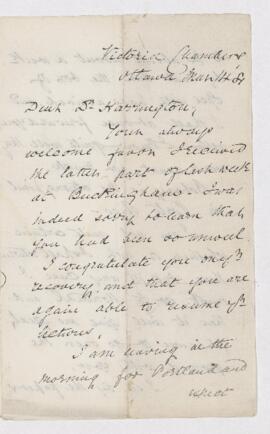 Victoria Chambers
Ottawa
Dear Dr Harrington,
Your always
welcome favor I received
the latter part of last week
at Buckingham. I was
indeed sorry to learn that
you had been so unwell.
I congratulate you on yr
recovery and that you are
again able to resume yr
lectures.
I am leaving in the
morning for Portland and
expect